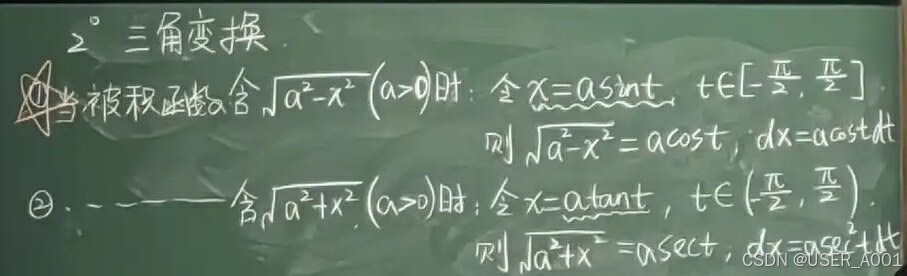 2° 三角变换.
① 当被积函数含√(a²-x²) (a>0)时: 令x=asint, t∈[-π/2, π/2].
则√(a²-x²)=acost, dx=acostdt
②. ------含√(a²+x²) (a>0)时: 令x=atant, t∈(-π/2, π/2).
则√(a²+x²)=asect, dx=asec²tdt
CSDN @USER_A001